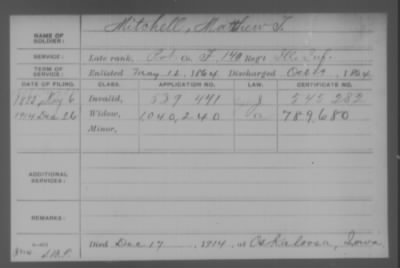 NAME OF SOLDIER: Mitchell, Matthew T.
SERVICE: Late rank, Co. F, 140 Reg't Ills. Inf.
TERM OF SERVICE: Enlisted May 12, 1864 Discharged Oct 1864
DATE OF FILING. CLASS. APPLICATION NO. LAW. CERTIFICATE NO.
Invalid, 539 441 J 545 282
1914 Dec 26 Widow, 1040,240 789,680
Minor,
ADDITIONAL SERVICES:
REMARKS:
Died Dec 17 1914, at Oskaloosa, Iowa